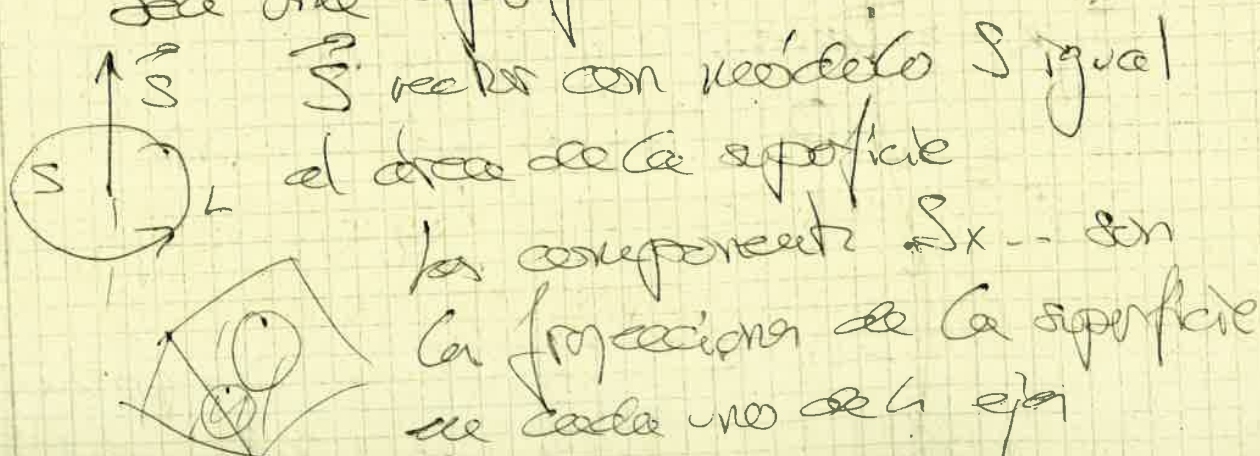 sea una
S⃗ S⃗ vector con módulo S igual
S al área de la superficie
L
las componentes Sx -- son
la proyecciones de la superficie
en cada uno de los ejes